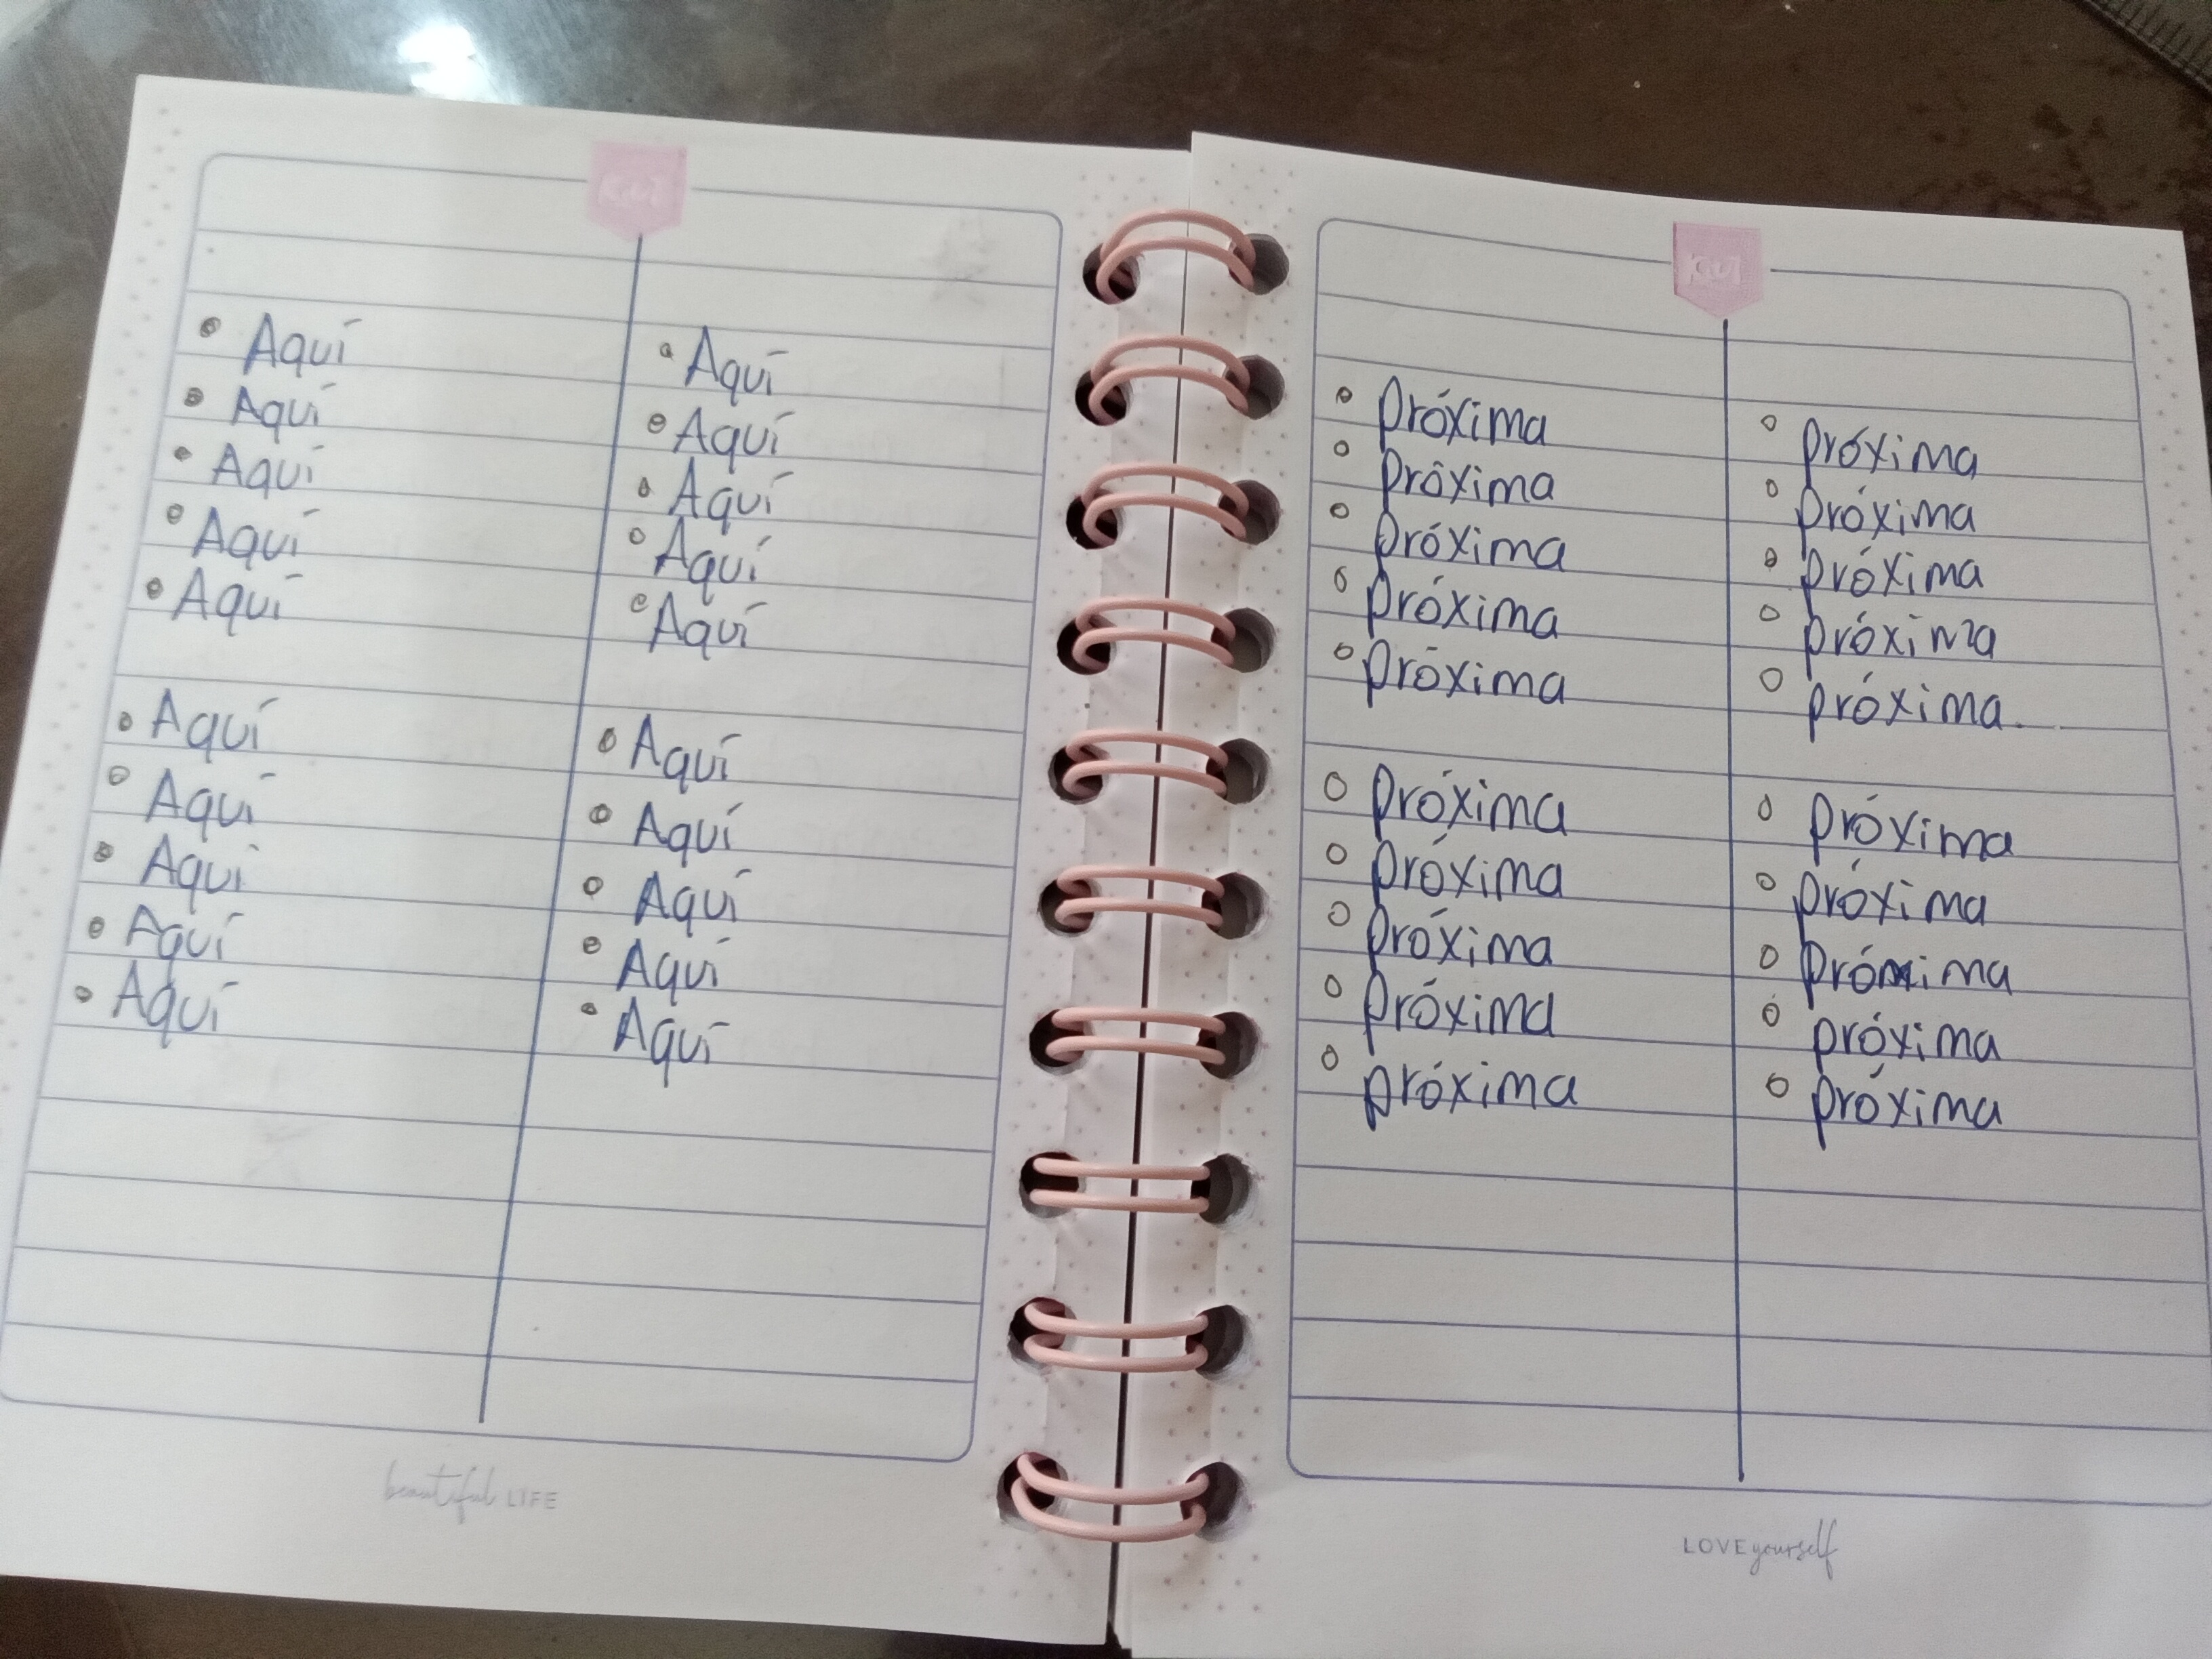 KUI
Aquí Aquí
Aquí Aquí
Aquí Aquí
Aquí Aquí
Aquí Aquí
Aquí Aquí
Aquí Aquí
Aquí Aquí
Aquí Aquí
Aquí Aquí
beautiful LIFE
KUI
próxima próxima
próxima próxima
próxima próxima
próxima próxima
próxima próxima.
próxima próxima
próxima próxima
próxima próxima
próxima próxima
próxima próxima
LOVE yourself